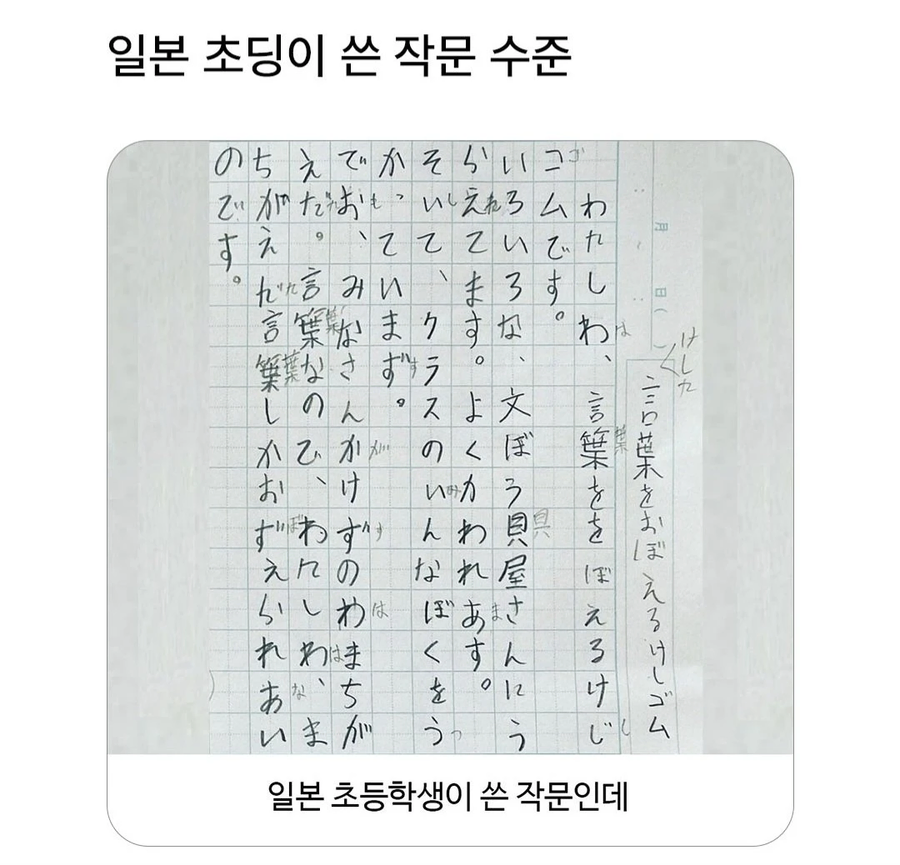 일본 초딩이 쓴 작문 수준
月 日( )
けした
言葉をおぼえるけしゴム
わたしわ、言葉をを ぼえるけじ
は 葉 し
コムです。
ゴ
いろいろな、文ぼう貝屋さんにう
具
らえてます。よくかわれあす。
れ ま
そいて、クラスのいんなぼくをう
し み つ
かっていまず。
す
でお、みなさんかけずのわまちが
も が す は
えだ。言葉なので、わたしわ、ま
葉 は
ちがえだ言葉しかおずえられあい
た 葉 ぼ な
のです。
일본 초등학생이 쓴 작문인데